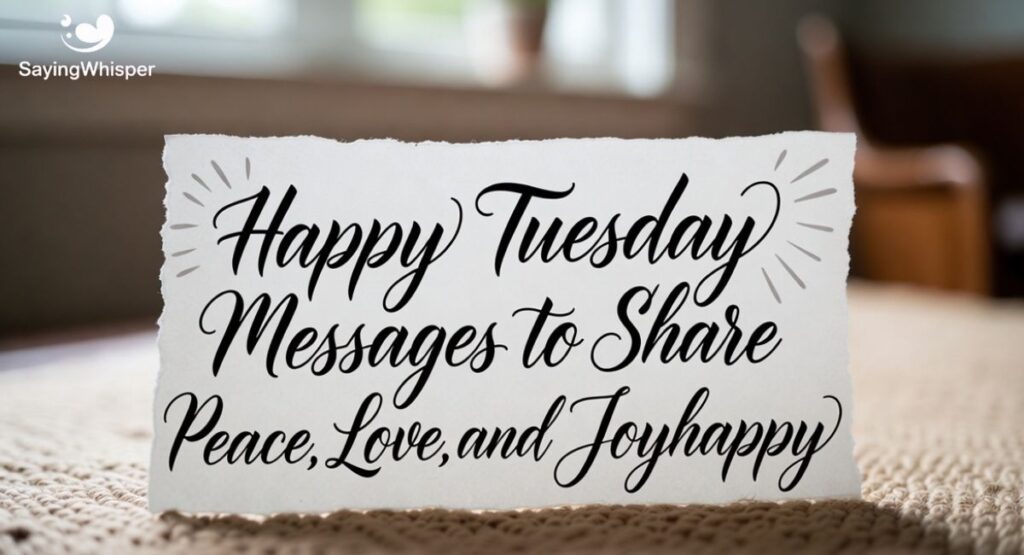 SayingWhisper
Happy Tuesday
Messages to Share
Peace, Love, and Joyhappy